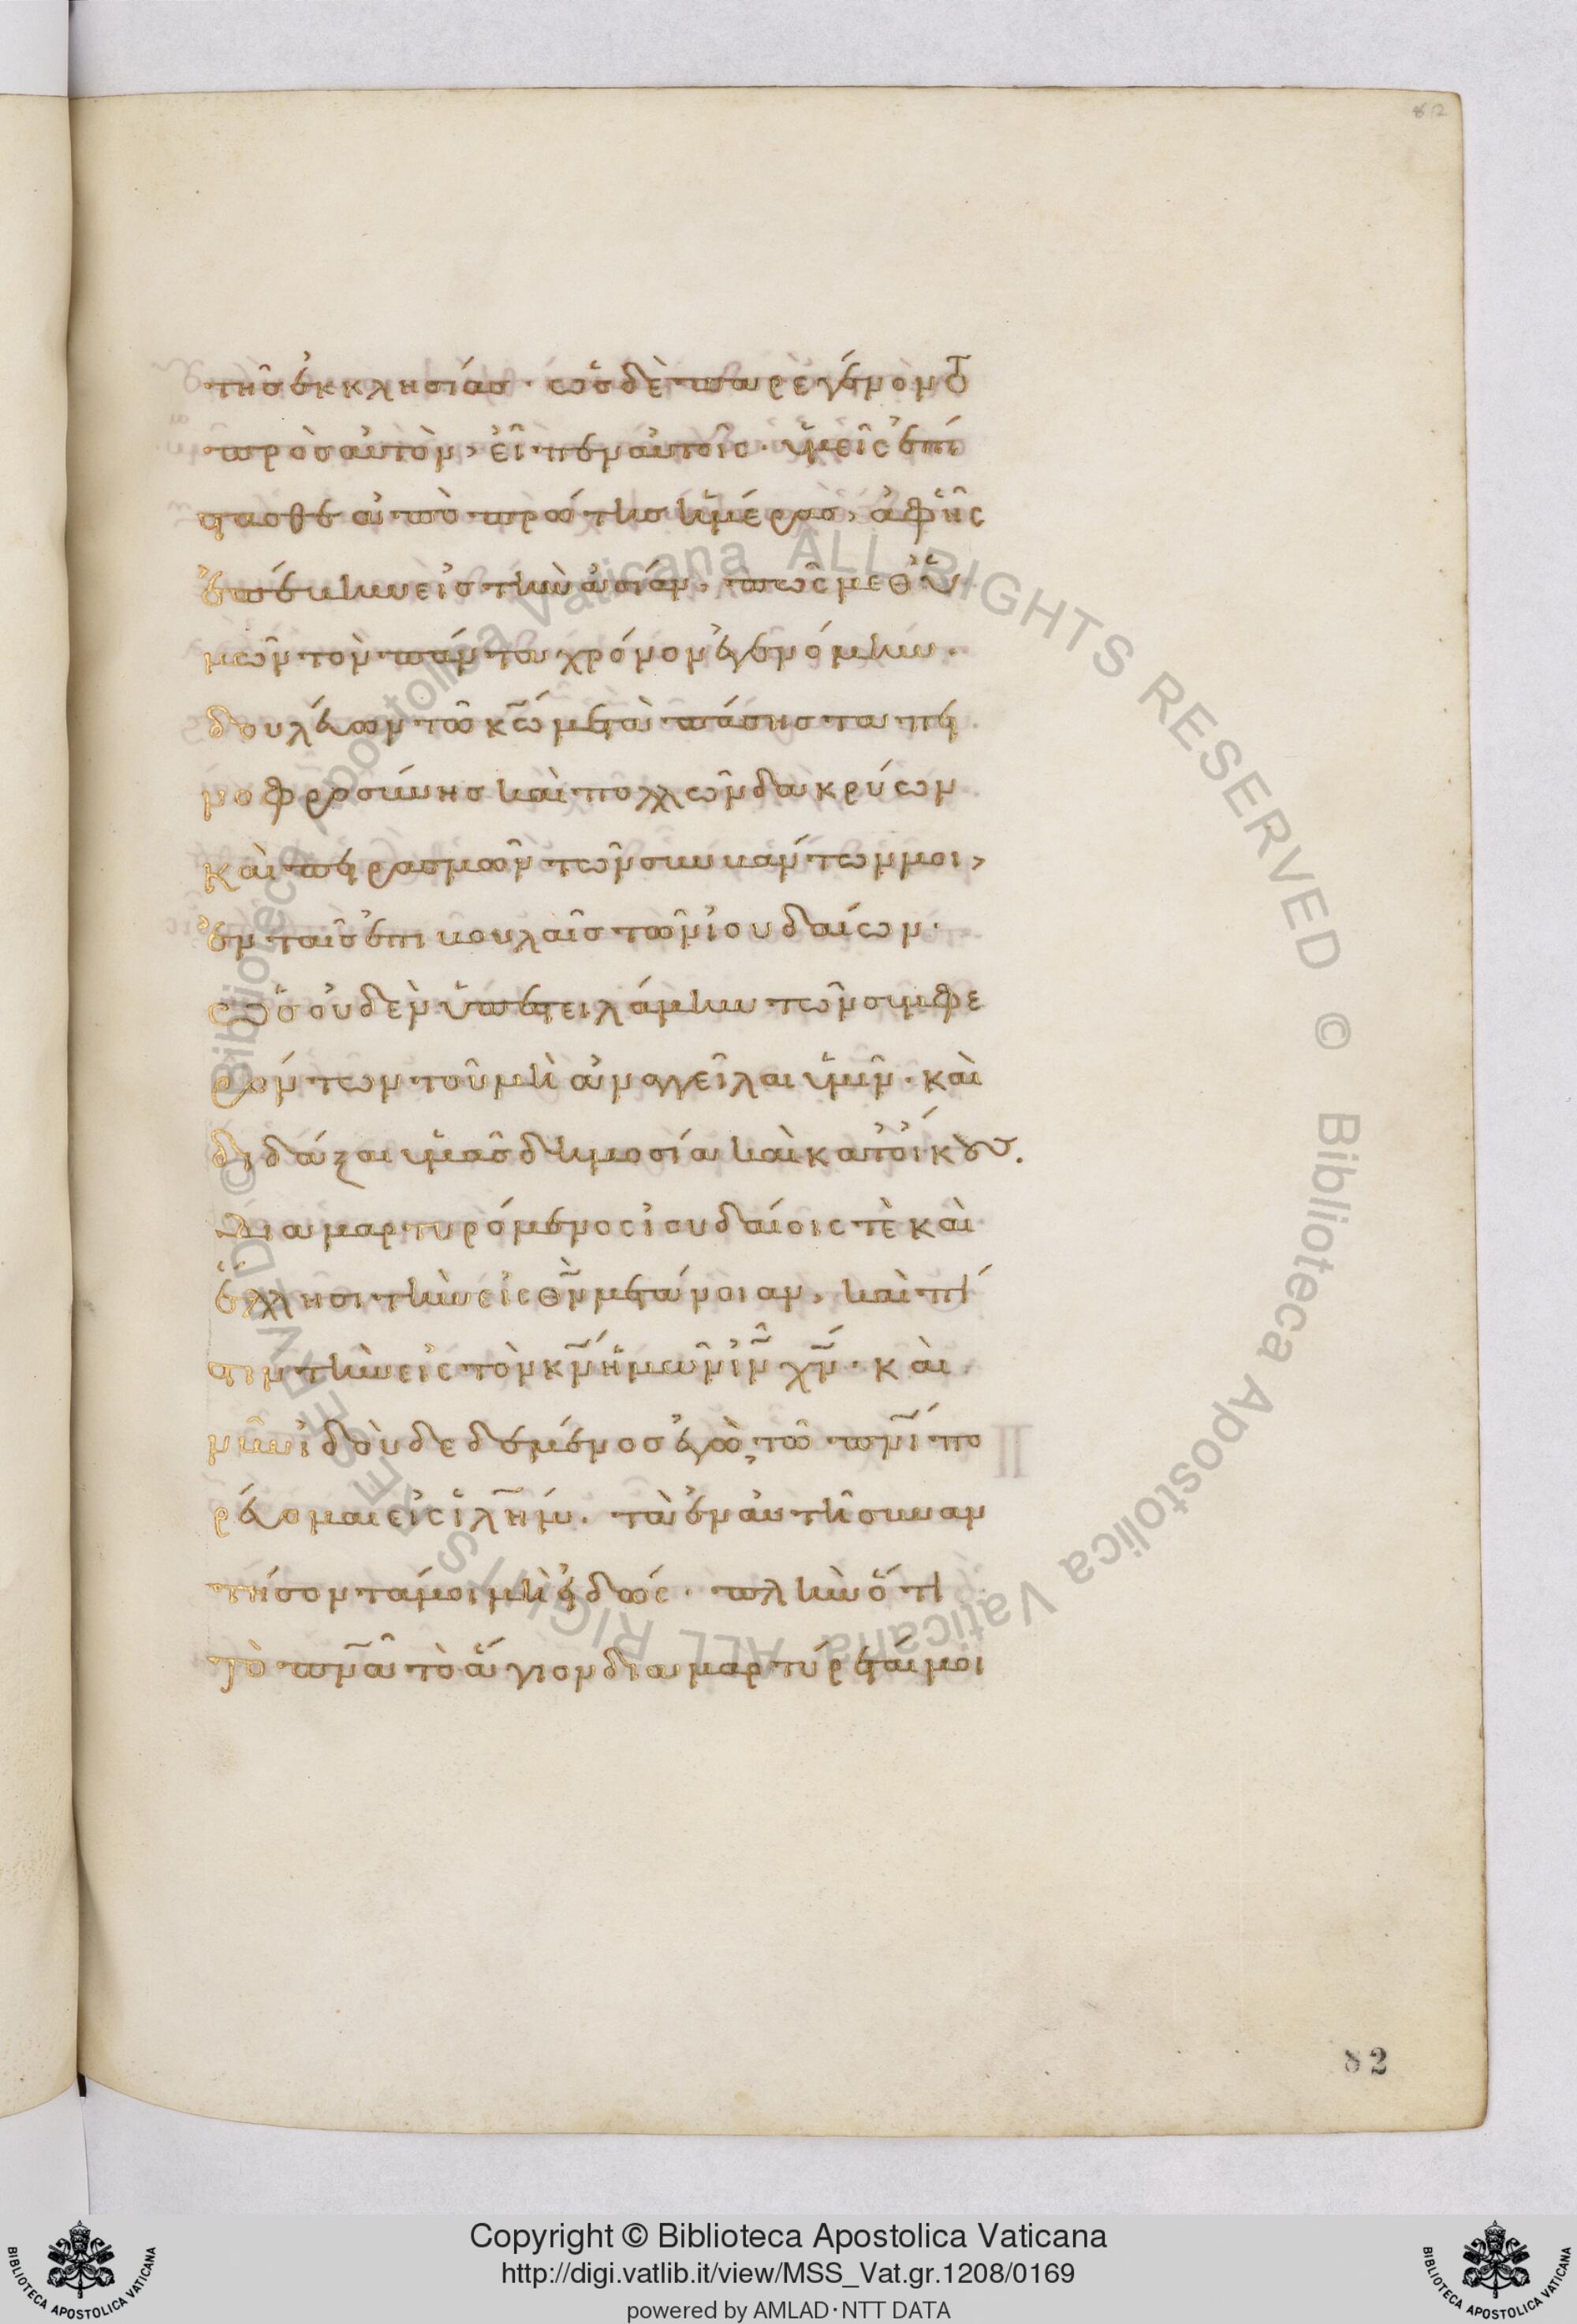 82
τῆς ἐκκλησίας · ὡς δὲ παρεγένοντο
πρὸς αὐτὸν, εἶπεν αὐτοῖς · ὑμεῖς ἐπί
στασθε ἀπὸ πρώτης ἡμέρας, ἀφ' ἧς
ἐπέβην εἰς τὴν ἀσίαν, πῶς μεθ' ὑ
μῶν τὸν πάντα χρόνον ἐγενόμην ·
δουλεύων τῶ κω μετὰ πάσης ταπει
νοφροσύνης καὶ πολλῶν δακρύων
καὶ πειρασμῶν τῶν συμβάντων μοι,
ἐν ταῖς ἐπιβουλαῖς τῶν ἰουδαίων ·
ὡς οὐδὲν ὑπεστειλάμην τῶν συμφε
ρόντων τοῦ μὴ ἀναγγεῖλαι ὑμῖν · καὶ
διδάξαι ὑμᾶς δημοσία καὶ κατ' οἴκους.
Διαμαρτυρόμενος ἰουδαίοις τὲ καὶ
ἕλλησι τὴν εἰς θν μετάνοιαν, καὶ πί
στιν τὴν εἰς τὸν κν ἡμῶν ιν χν · καὶ
νῦν ἰδοὺ δεδεμένος ἐγὼ, τῶ πνι πο
ρεύομαι εἰς ιλημ. τὰ ἐν αὐτῆ συναν
τήσοντά μοι μὴ εἰδώς · πλὴν ὅτι
τὸ πνα τὸ ἅγιον διαμαρτύρεταί μοι
82
© Biblioteca Apostolica Vaticana ALL RIGHTS RESERVED © Biblioteca Apostolica Vaticana ALL RIGHTS RESERVED
Copyright © Biblioteca Apostolica Vaticana
http://digi.vatlib.it/view/MSS_Vat.gr.1208/0169
powered by AMLAD·NTT DATA
BIBLIOTECA APOSTOLICA VATICANA
BIBLIOTECA APOSTOLICA VATICANA